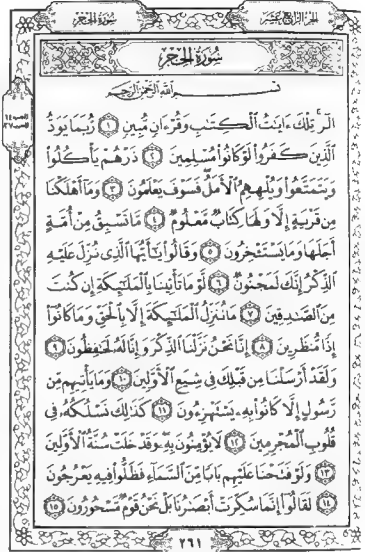 الجزء الرابع عشر
سورة الحجر
سورة الحجر
بسم الله الرحمن الرحيم
الٓر تِلْكَ ءَايَٰتُ ٱلْكِتَٰبِ وَقُرْءَانٍ مُّبِينٍ ١ رُّبَمَا يَوَدُّ
ٱلَّذِينَ كَفَرُواْ لَوْ كَانُواْ مُسْلِمِينَ ٢ ذَرْهُمْ يَأْكُلُواْ
وَيَتَمَتَّعُواْ وَيُلْهِهِمُ ٱلْأَمَلُ فَسَوْفَ يَعْلَمُونَ ٣ وَمَآ أَهْلَكْنَا
مِن قَرْيَةٍ إِلَّا وَلَهَا كِتَابٌ مَّعْلُومٌ ٤ مَّا تَسْبِقُ مِنْ أُمَّةٍ
أَجَلَهَا وَمَا يَسْتَـْٔخِرُونَ ٥ وَقَالُواْ يَٰٓأَيُّهَا ٱلَّذِى نُزِّلَ عَلَيْهِ
ٱلذِّكْرُ إِنَّكَ لَمَجْنُونٌ ٦ لَّوْ مَا تَأْتِينَا بِٱلْمَلَٰٓئِكَةِ إِن كُنتَ
مِنَ ٱلصَّٰدِقِينَ ٧ مَا نُنَزِّلُ ٱلْمَلَٰٓئِكَةَ إِلَّا بِٱلْحَقِّ وَمَا كَانُوٓاْ
إِذًا مُّنظَرِينَ ٨ إِنَّا نَحْنُ نَزَّلْنَا ٱلذِّكْرَ وَإِنَّا لَهُۥ لَحَٰفِظُونَ ٩
وَلَقَدْ أَرْسَلْنَا مِن قَبْلِكَ فِى شِيَعِ ٱلْأَوَّلِينَ ١٠ وَمَا يَأْتِيهِم مِّن
رَّسُولٍ إِلَّا كَانُواْ بِهِۦ يَسْتَهْزِءُونَ ١١ كَذَٰلِكَ نَسْلُكُهُۥ فِى
قُلُوبِ ٱلْمُجْرِمِينَ ١٢ لَا يُؤْمِنُونَ بِهِۦ وَقَدْ خَلَتْ سُنَّةُ ٱلْأَوَّلِينَ
١٣ وَلَوْ فَتَحْنَا عَلَيْهِم بَابًا مِّنَ ٱلسَّمَآءِ فَظَلُّواْ فِيهِ يَعْرُجُونَ
١٤ لَقَالُوٓاْ إِنَّمَا سُكِّرَتْ أَبْصَٰرُنَا بَلْ نَحْنُ قَوْمٌ مَّسْحُورُونَ ١٥
٢٦١